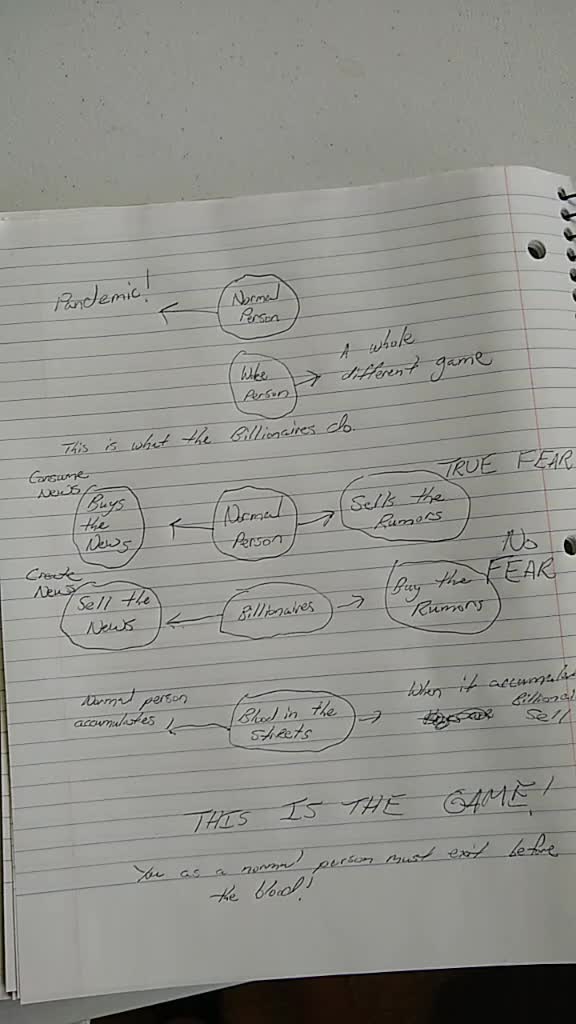 Pandemic!
Normal
Person
Woke
Person
A whole
different game
This is what the Billionaires do.
Consume
News
Buys
the
News
Normal
Person
Sells the
Rumors
TRUE FEAR
Create
News
Sell the
News
Billionaires
Buy the
Rumors
No
FEAR
Normal person
accumulates!
Blood in the
streets
When it accumula
Billionai
Sell
THIS IS THE GAME!
You as a normal person must exit before
the blood!